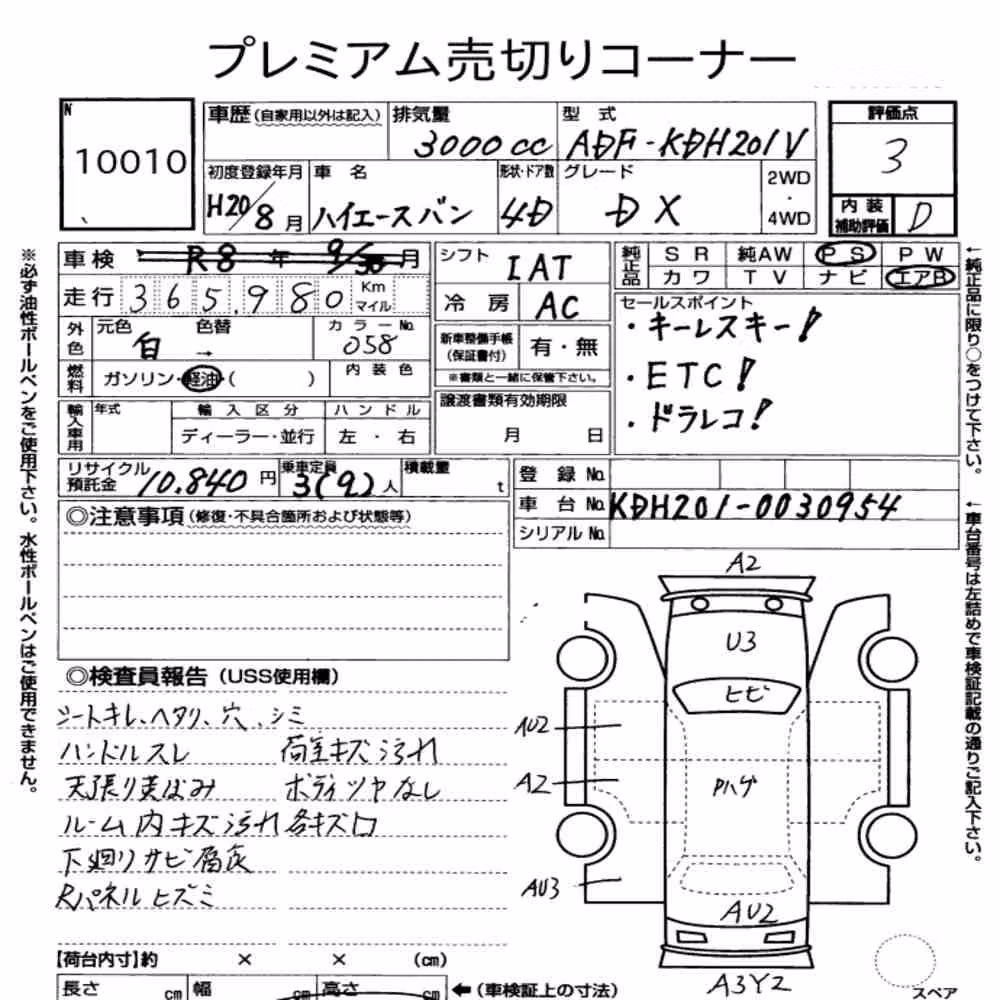 プレミアム売切りコーナー
N
10010
車歴 (自家用以外は記入)
排気量
3000cc
型 式
ADF-KDH201V
評価点
3
初度登録年月
H20/8月
車 名
ハイエースバン
形状・ドア数
4D
グレード
DX
2WD
・
4WD
内 装
補助評価
D
車検
R8 年 9/30 月
走行
365,980
Km
マイル
シフト
IAT
冷 房
AC
純正品
SR 純AW PS PW
カワ TV ナビ エアB
セールスポイント
・キーレスキー!
・ETC!
・ドラレコ!
外色
元色
白
色替
→
カラーNo.
058
新車整備手帳
(保証書付)
有・無
※書類と一緒に保管下さい。
燃料
ガソリン・軽油・( )
内 装 色
譲渡書類有効期限
月 日
輸入車用
年式
輸 入 区 分
ディーラー・並行
ハ ン ド ル
左 ・ 右
リサイクル
預託金
10.840 円
乗車定員
3(9)人
積載量
t
登 録 No.
車 台 No.
KDH201-0030954
シリアル No.
◎注意事項 (修復・不具合箇所および状態等)
◎検査員報告 (USS使用欄)
シートキレ、ヘタリ、穴、シミ
ハンドルスレ 荷室キズ汚れ
天張り黄ばみ ボディツヤなし
ルーム内キズ汚れ 各キズ凹
下廻りサビ腐食
Rパネルヒズミ
A2
U3
ヒビ
AU2
A2
Pハゲ
AU3
AU2
A3Y2
スペア
【荷台内寸】約 × × (cm)
長さ cm 幅 cm 高さ cm ←(車検証上の寸法)
※必ず油性ボールペンをご使用下さい。水性ボールペンはご使用できません。
←純正品に限り○をつけて下さい。
←車台番号は左詰めで車検証記載の通りご記入下さい。